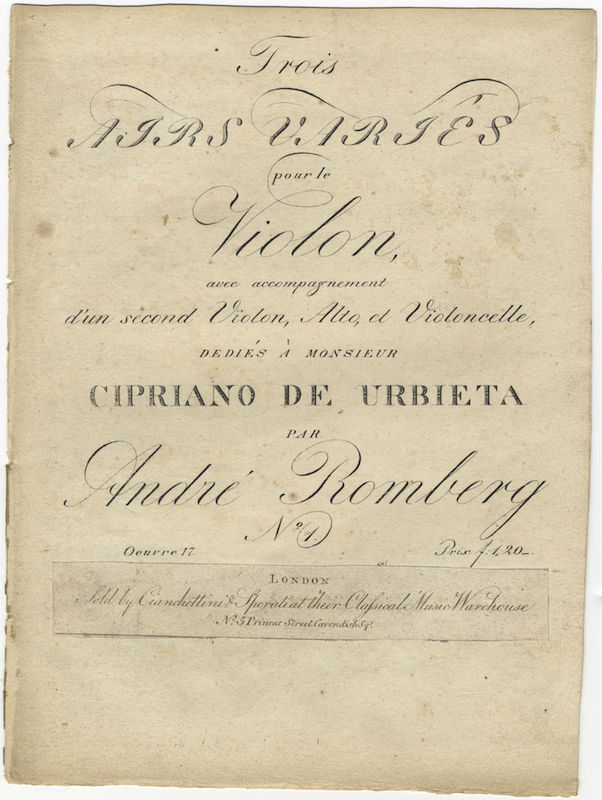 Trois
AIRS VARIÉS
pour le
Violon,
avec accompagnement
d'un second Violon, Alto, et Violoncelle,
DEDIÉS À MONSIEUR
CIPRIANO DE URBIETA
PAR
André Romberg
No. 1
Oeuvre 17. Prix f: 1,20
LONDON
Sold by Cianchettini & Sperati at their Classical Music Warehouse
No. 5 Princes Street, Cavendish Sqr.